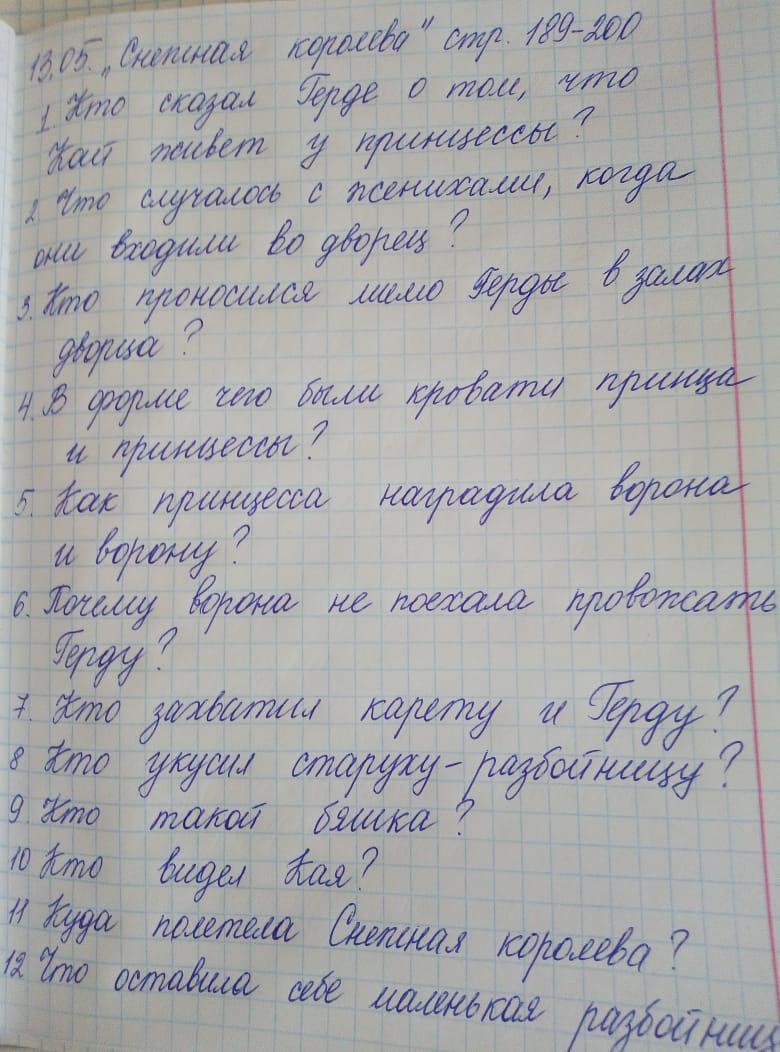 13.05. „Снежная королева" стр. 189-200
1 Кто сказал Герде о том, что
Кай живет у принцессы?
2 Что случалось с женихами, когда
они входили во дворец?
3. Кто проносился мимо Герды в залах
дворца?
4. В форме чего были кровати принца
и принцессы?
5. Как принцесса наградила ворона
и ворону?
6. Почему ворона не поехала провожать
Герду?
7. Кто захватил карету и Герду?
8 Кто укусил старуху-разбойницу?
9 Кто такой бяшка?
10 Кто видел Кая?
11 Куда полетела Снежная королева?
12 Что оставила себе маленькая разбойниц